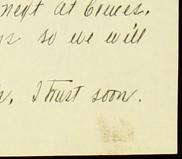 next at Bruces.
so we will
I trust soon.